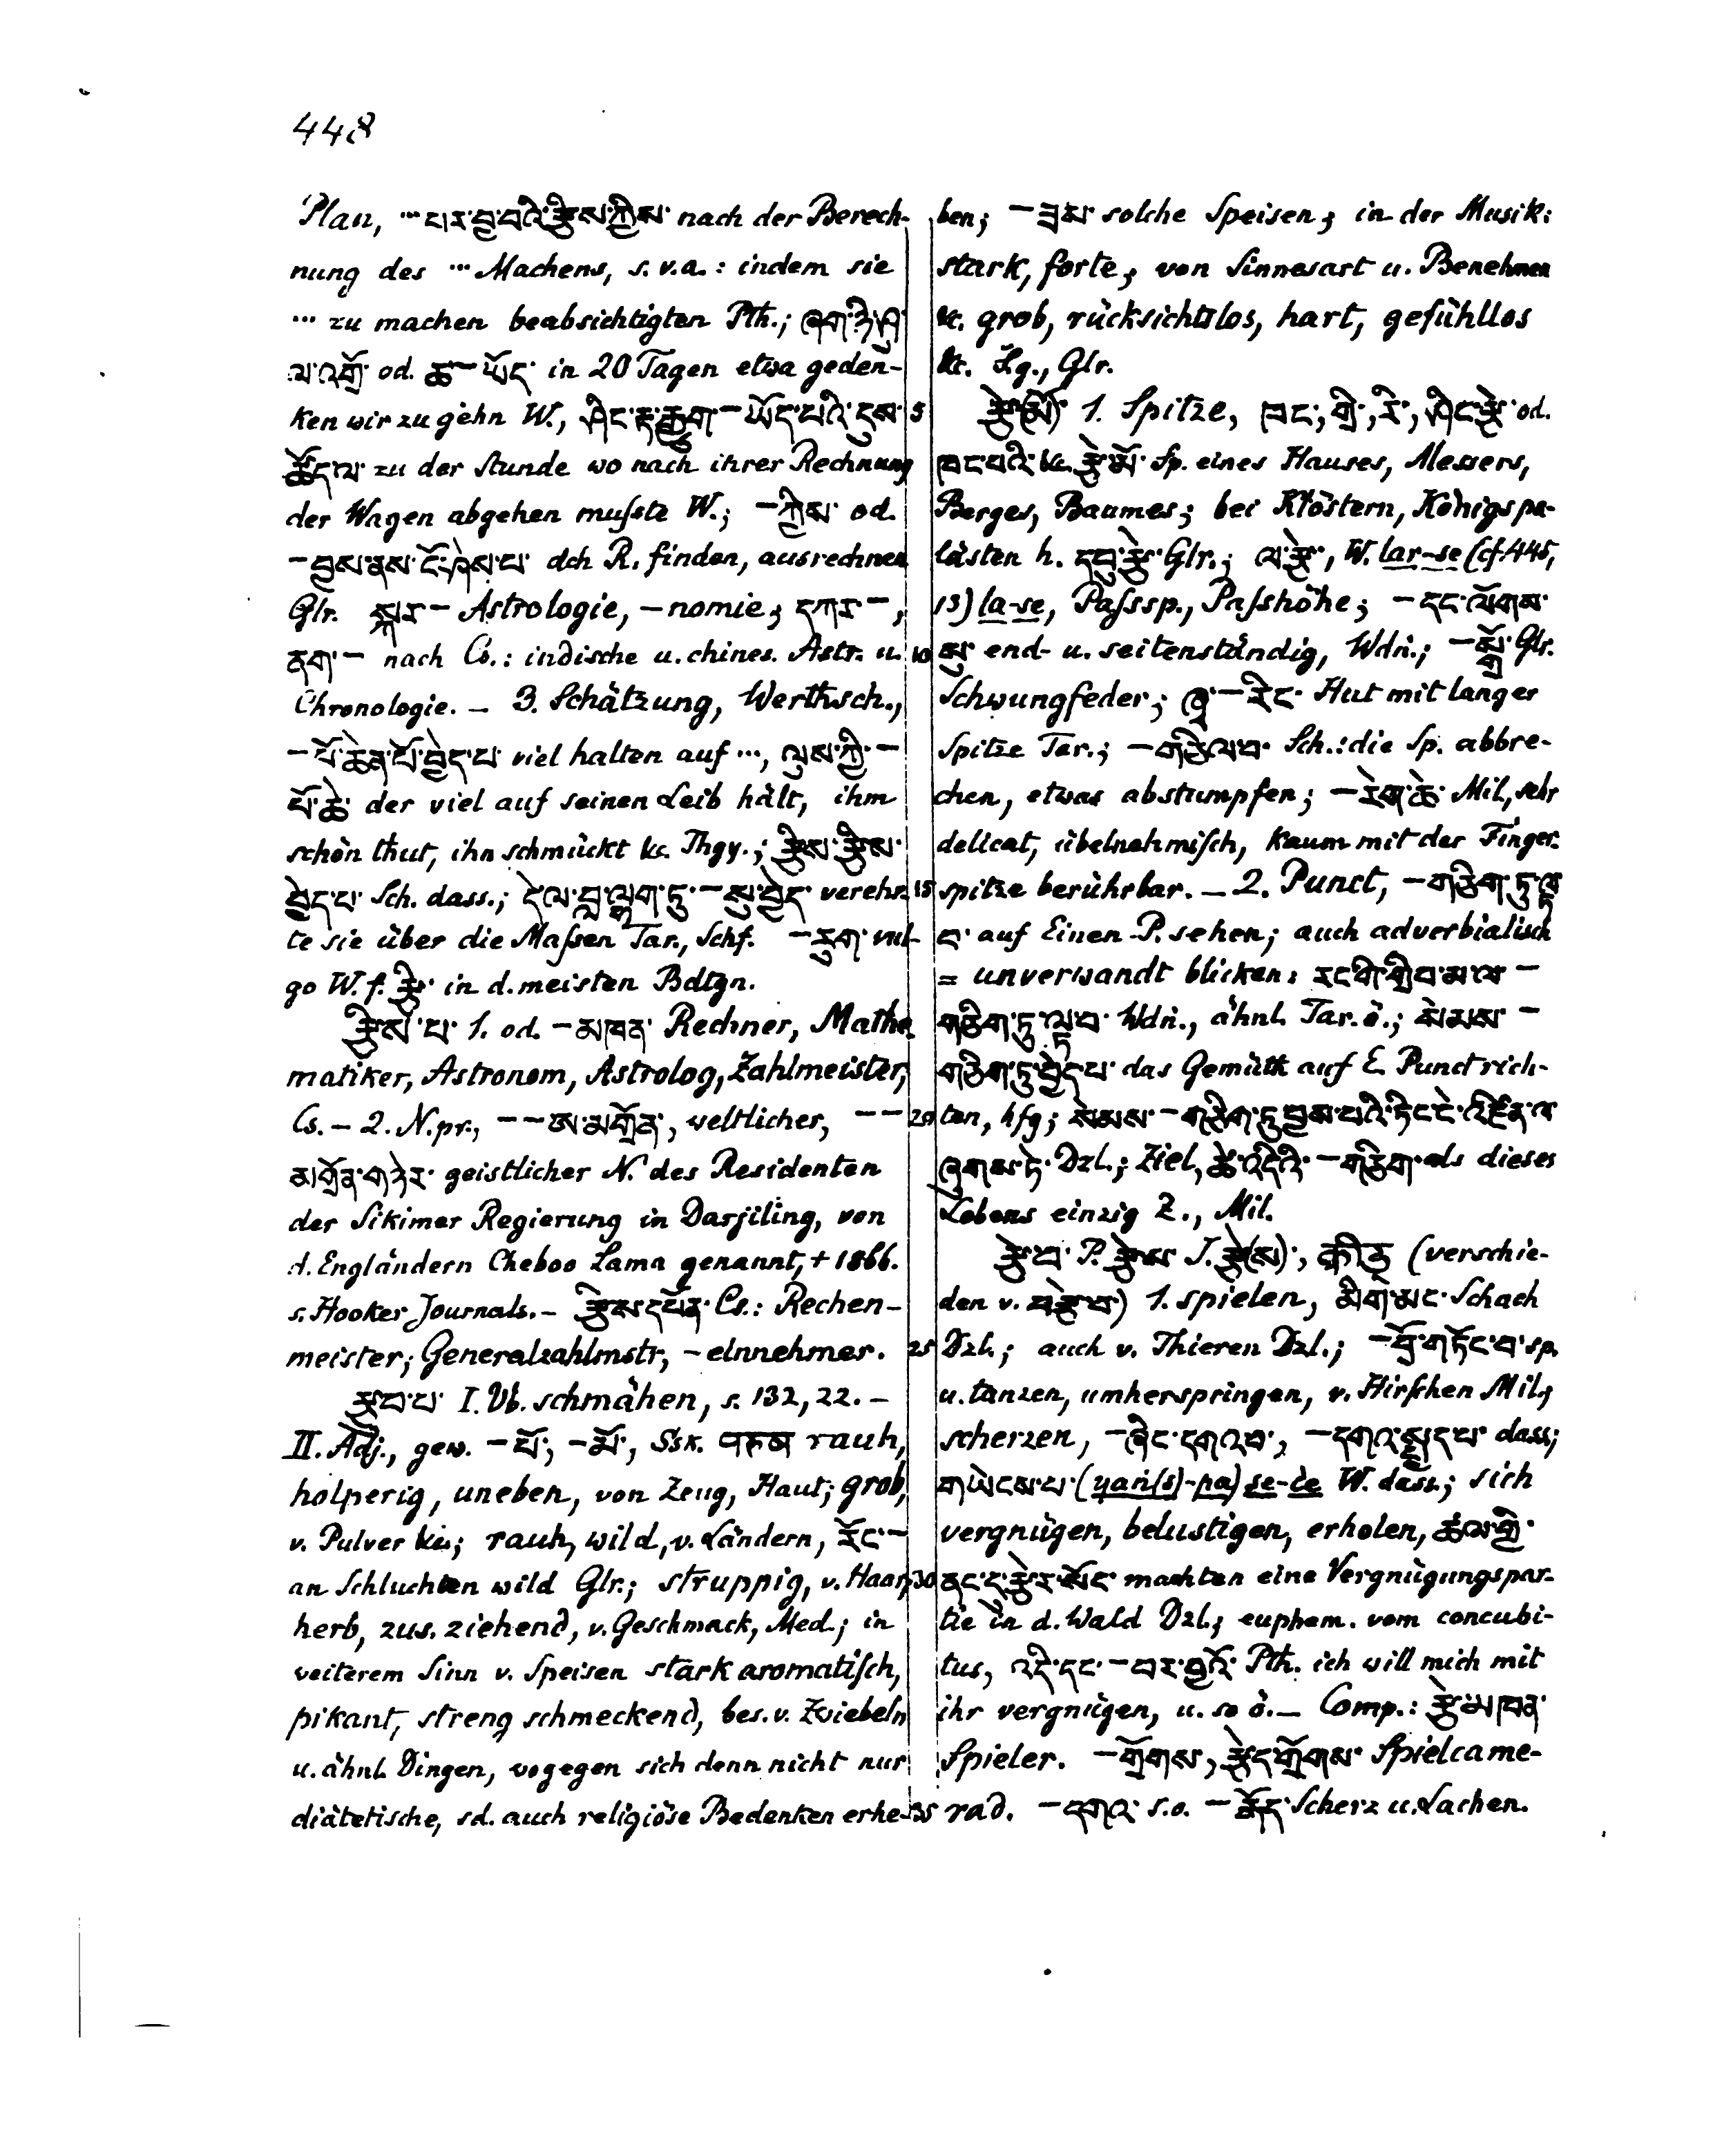 448
Plan, ··· པར་བྱ་བའི་རྩིས་ཀྱིས་ nach der Berech-
nung des ··· Machens, s. v. a.: indem sie
··· zu machen beabsichtigten Pth.; ཞག་ཉི་ཤུ་
ལ་འགྲོ་ od. ཆ – ཡོད་ in 20 Tagen etwa geden-
ken wir zu gehn W., ཤིང་རྟ་རྒྱུག་ – ཡོད་པའི་དུས་ 5
ཚོད་ལ་ zu der Stunde wo nach ihrer Rechnung
der Wagen abgehen muſste W.; – ཀྱིས་ od.
– བྱས་ནས་ངོ་ཤེས་པ་ dch R. finden, ausrechnen
Glr. སྐར – Astrologie, – nomie; དཀར –,
ནག་ – nach Cs.: indische u. chines. Astr. u. 10
Chronologie. – 3. Schätzung, Werthsch.,
– པོ་ཆེན་པོ་བྱེད་པ་ viel halten auf ···, ལུས་ཀྱི་ –
པོ་ཆེ་ der viel auf seinen Leib hält, ihm
schön thut, ihn schmückt &c. Thgy.; རྩིས་རྩིས་
བྱེད་པ་ Sch. dass.; དེ་ལ་བླ་ལྷག་ཏུ་ – སུ་བྱེད་ verehr- 15
te sie über die Maſsen Tar., Schf. – རུག་ vul-
go W. f. རྩི་ in d. meisten Bdtgn.
རྩིས་པ་ 1. od. – མཁན་ Rechner, Mathe
matiker, Astronom, Astrolog, Zahlmeister,
Cs. – 2. N. pr., – – ཨ་མགྲོན་, weltlicher, – – 20
མགྲོན་གཉེར་ geistlicher N. des Residenten
der Sikimer Regierung in Darjiling, von
d. Engländern Cheboo Lama genannt, + 1866.
s. Hooker Journals. – རྩིས་དཔོན་ Cs.: Rechen-
meister; Generalzahlmstr, – einnehmer. 25
རྩུབ་པ་ I. Vb. schmähen, s. 132, 22. –
II. Adj., gew. – པོ་, – མོ་, Ssk. परुष rauh,
holperig, uneben, von Zeug, Haut; grob,
v. Pulver &c; rauh, wild, v. Ländern, རོང་ –
an Schluchten wild Glr.; struppig, v. Haar, 30
herb, zus. ziehend, v. Geschmack, Med.; in
weiterem Sinn v. Speisen stark aromatiſch,
pikant, streng schmeckend, bes. v. Zwiebeln
u. ähnl. Dingen, wogegen sich denn nicht nur
diätetische, sd. auch religiöse Bedenken erhe- 35
ben; – ཟས་ solche Speisen; in der Musik:
stark, forte; von Sinnesart u. Benehmen
&c. grob, rücksichtslos, hart, gefühllos
&c. Lg., Glr.
རྩེ་(མོ)་ 1. Spitze, ཁང་, གྲི་, རི་, ཤིང་རྩེ་ od.
ཁང་པའི་ &c. རྩེ་མོ་ Sp. eines Hauses, Messers,
Berges, Baumes; bei Klöstern, Königspa-
lästen h. དབུ་རྩེ་ Glr.; ལ་རྩེ་, W. lar-se (cf. 445,
13) la-se, Paſssp., Paſshöhe; – དང་ལོགས་
སུ་ end- u. seitenständig, Wdn.; – སྒྲོ་ Glr.
Schwungfeder; ཞྭ་ – རིང་ Hut mit langer
Spitze Tar.; – གཅིལ་བ་ Sch.: die Sp. abbre-
chen, etwas abstumpfen; – རེག་ཆེ་ Mil, sehr
delicat, übelnehmiſch, kaum mit der Finger-
spitze berührbar. – 2. Punct, – གཅིག་ཏུ་ལྟ་
བ་ auf Einen P. sehen; auch adverbialisch
= unverwandt blicken: རང་གི་གྲིབ་མ་ལ་ –
གཅིག་ཏུ་ལྟ་བ་ Wdn., ähnl. Tar. ö.; སེམས་ –
གཅིག་ཏུ་བྱེད་པ་ das Gemüth auf E. Punct rich-
ten, hfg; སེམས་ – གཅིག་ཏུ་བྱས་པའི་ཏིང་ངེ་འཛིན་ལ་
ཞུགས་ཏེ་ Dzl.; Ziel, ཚེ་འདིའི་ – གཅིག་ als dieses
Lebens einzig Z., Mil.
རྩེ་བ་ P. རྩེས་ J. རྩེ(ས)་, क्रीड (verschie-
den v. བརྩེ་བ་) 1. spielen, མིག་མང་ Schach
Dzl.; auch v. Thieren Dzl.; – བྲོ་གཏོང་བ་ sp.
u. tanzen, umherspringen, v. Hirſchen Mil;
scherzen, – ཞིང་དགའ་བ་, – དགའ་སྤྱད་པ་ dass;
གཡེངས་པ་ (yaṅ(s)-pa) se-ce W. dass.; sich
vergnügen, belustigen, erholen, ཚལ་གྱི་
ནང་དུ་རྩེར་སོང་ machten eine Vergnügungspar-
tie in d. Wald Dzl.; euphem. vom concubi-
tus, འདི་དང་ – བར་བྱའོ་ Pth. ich will mich mit
ihr vergnügen, u. so ö. – Comp.: རྩེ་མཁན་
Spieler. – གྲོགས་, རྩེད་གྲོགས་ Spielcame-
rad. – དགའ་ s. o. – རྒོད་ Scherz u. Lachen.